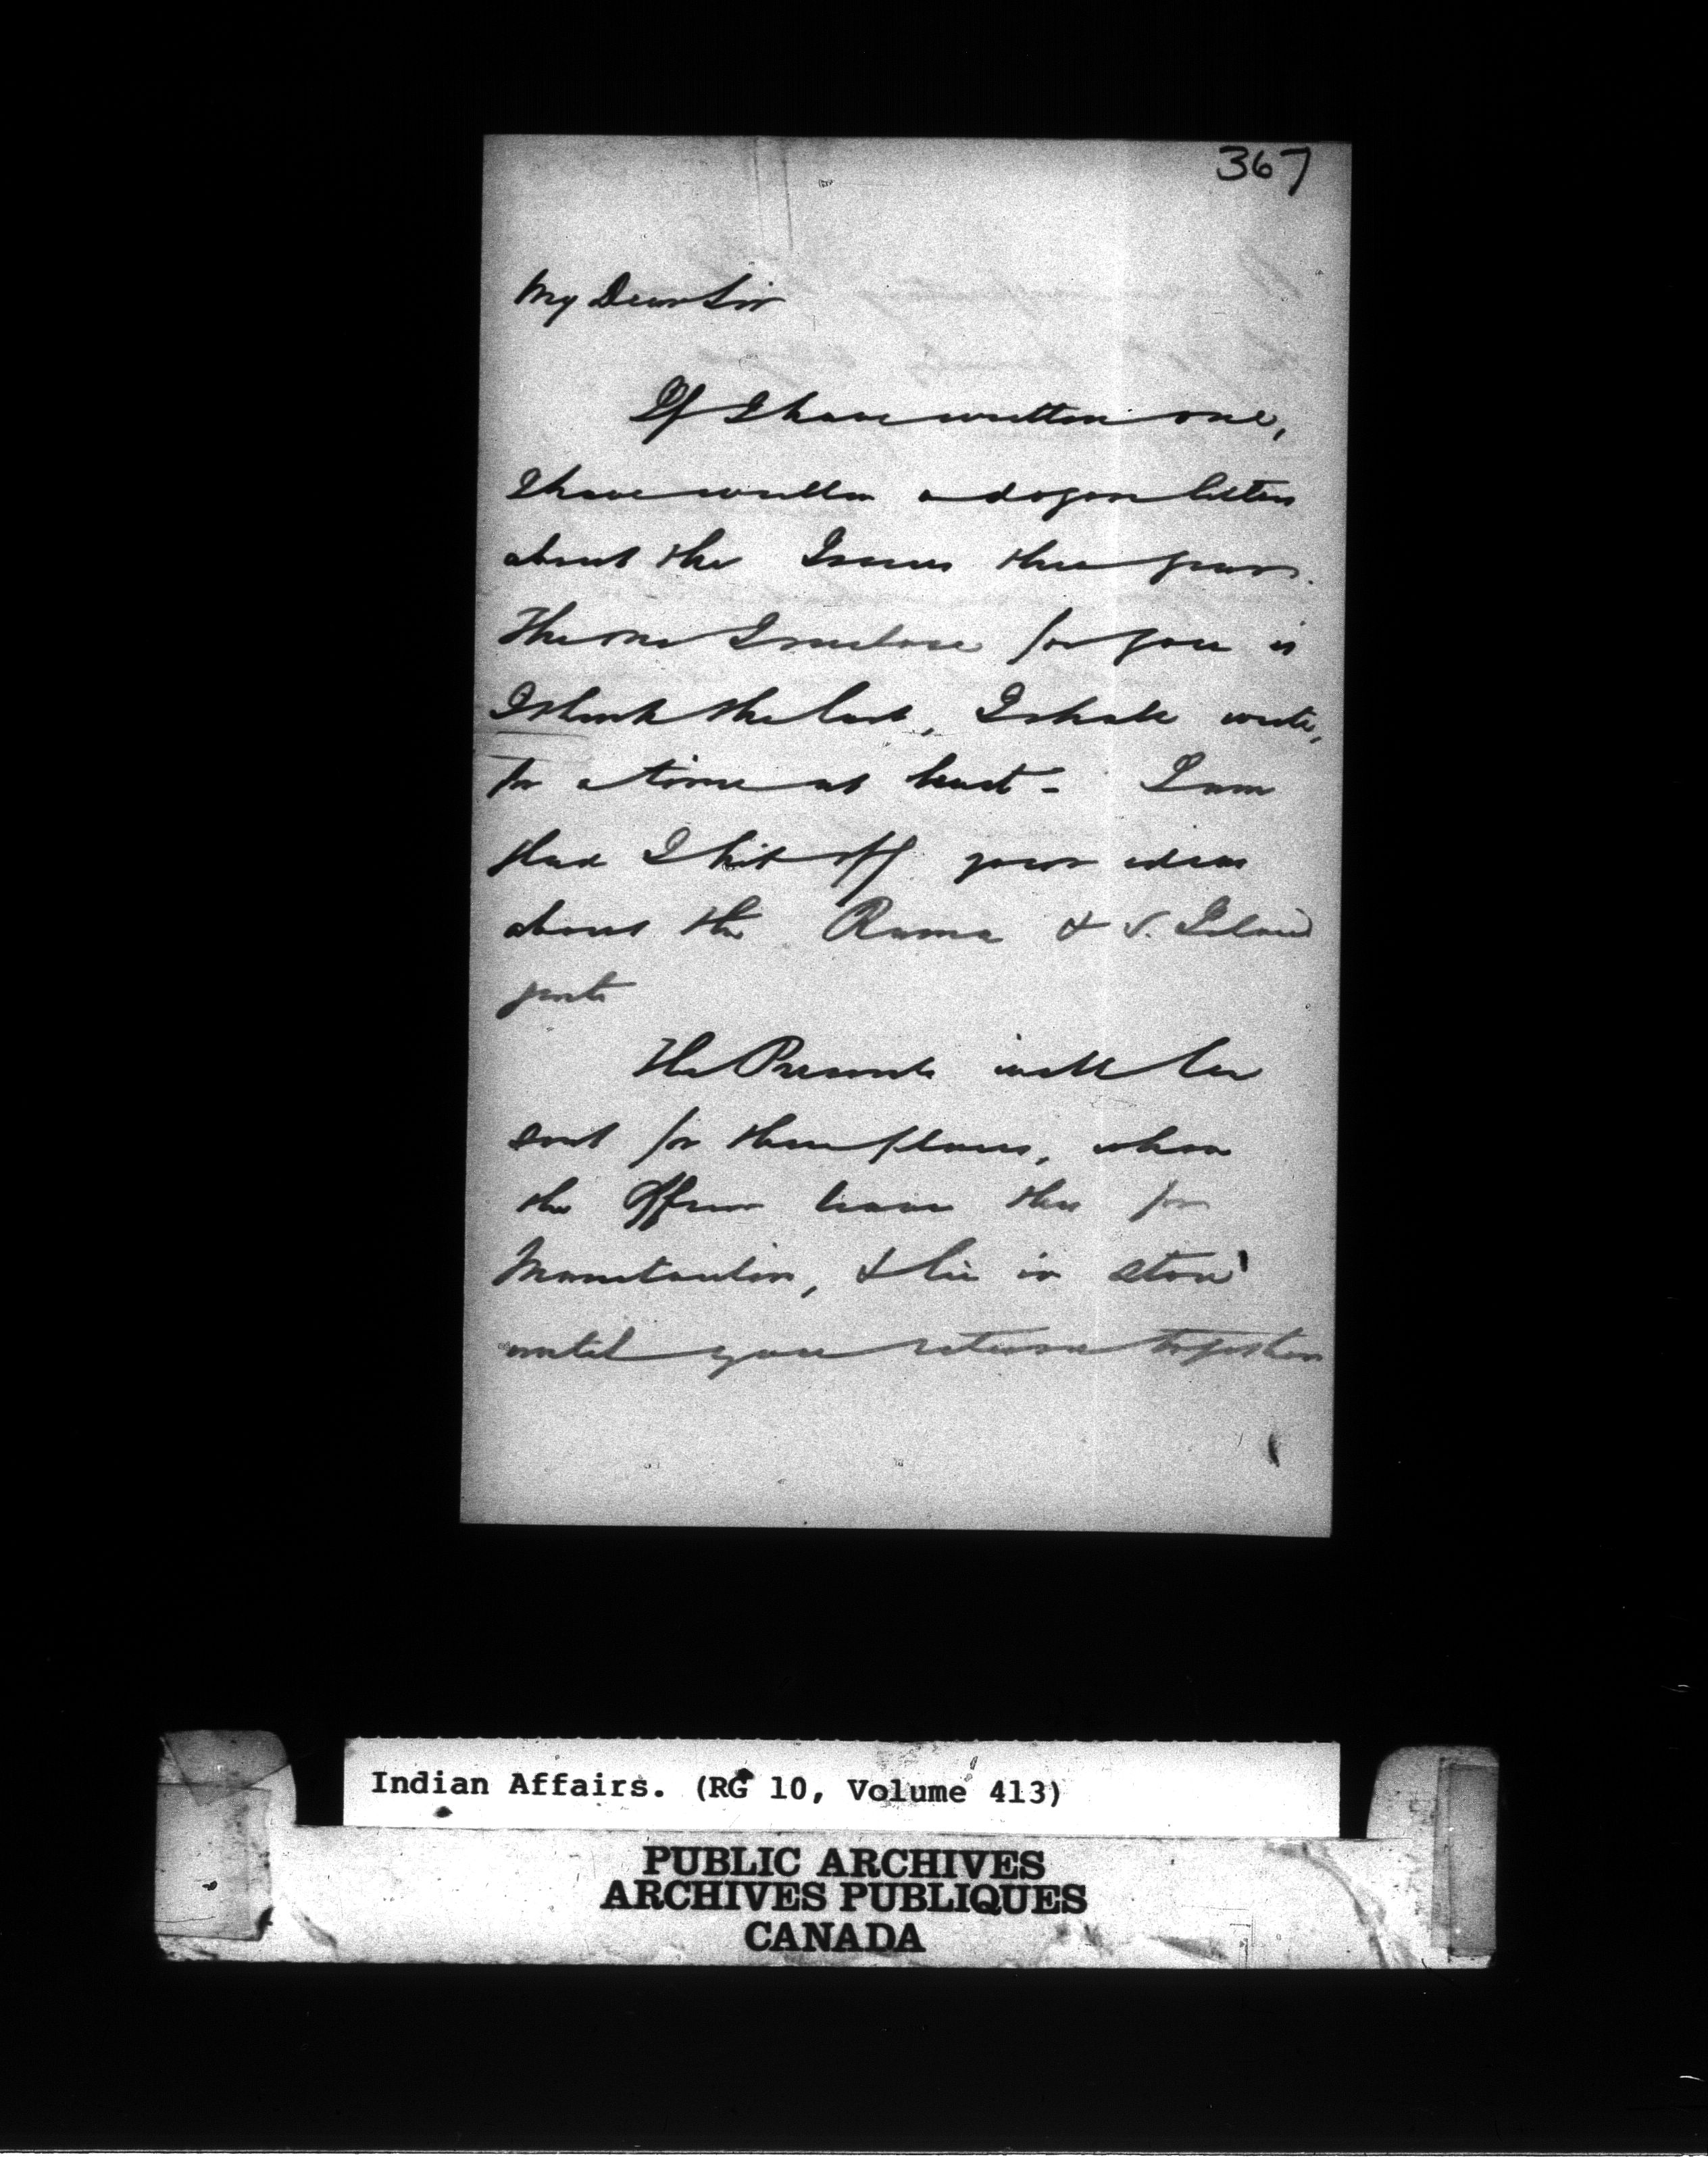 367
My Dear Sir
If I have written one,
I have written a dozen letters
about the Issues this year.
The one I enclose for you is
I think the last, I shall write,
for a time at least - I am
glad I hit off your ideas
about the Rama & S. Island
parts
The Presents will be
sent for these places, when
the Officers leave this for
Manitoulin, & lie in store
until you return together
Indian Affairs. (RG 10, Volume 413)
PUBLIC ARCHIVES
ARCHIVES PUBLIQUES
CANADA